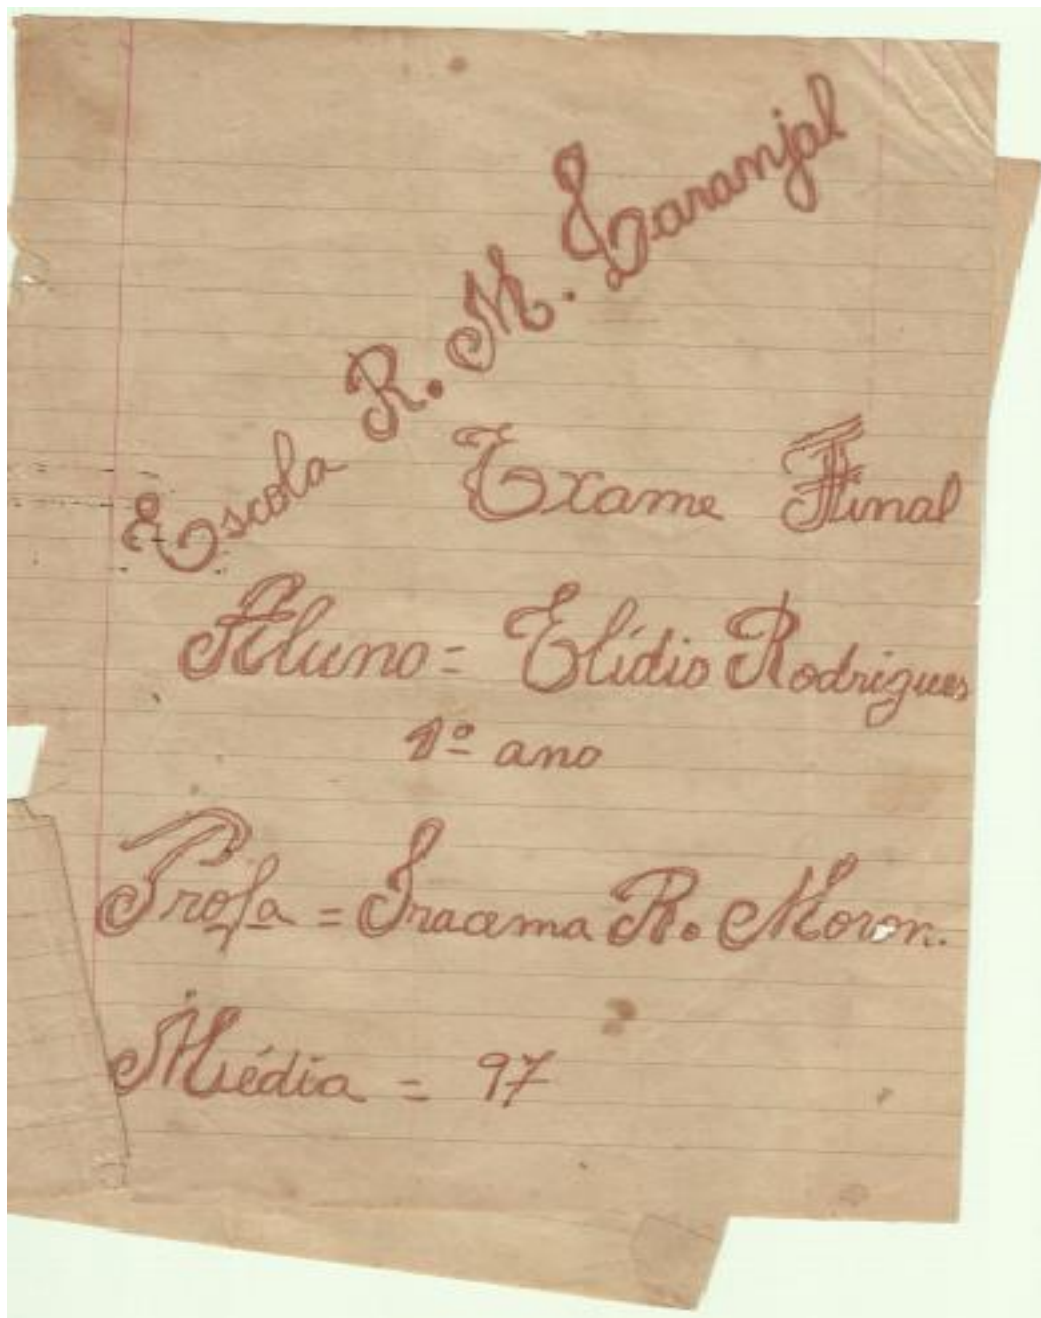 Escola R. M. Laranjal
Exame Final
Aluno = Elídio Rodrigues
1º ano
Profa = Iracema R. Moron.
Média = 97